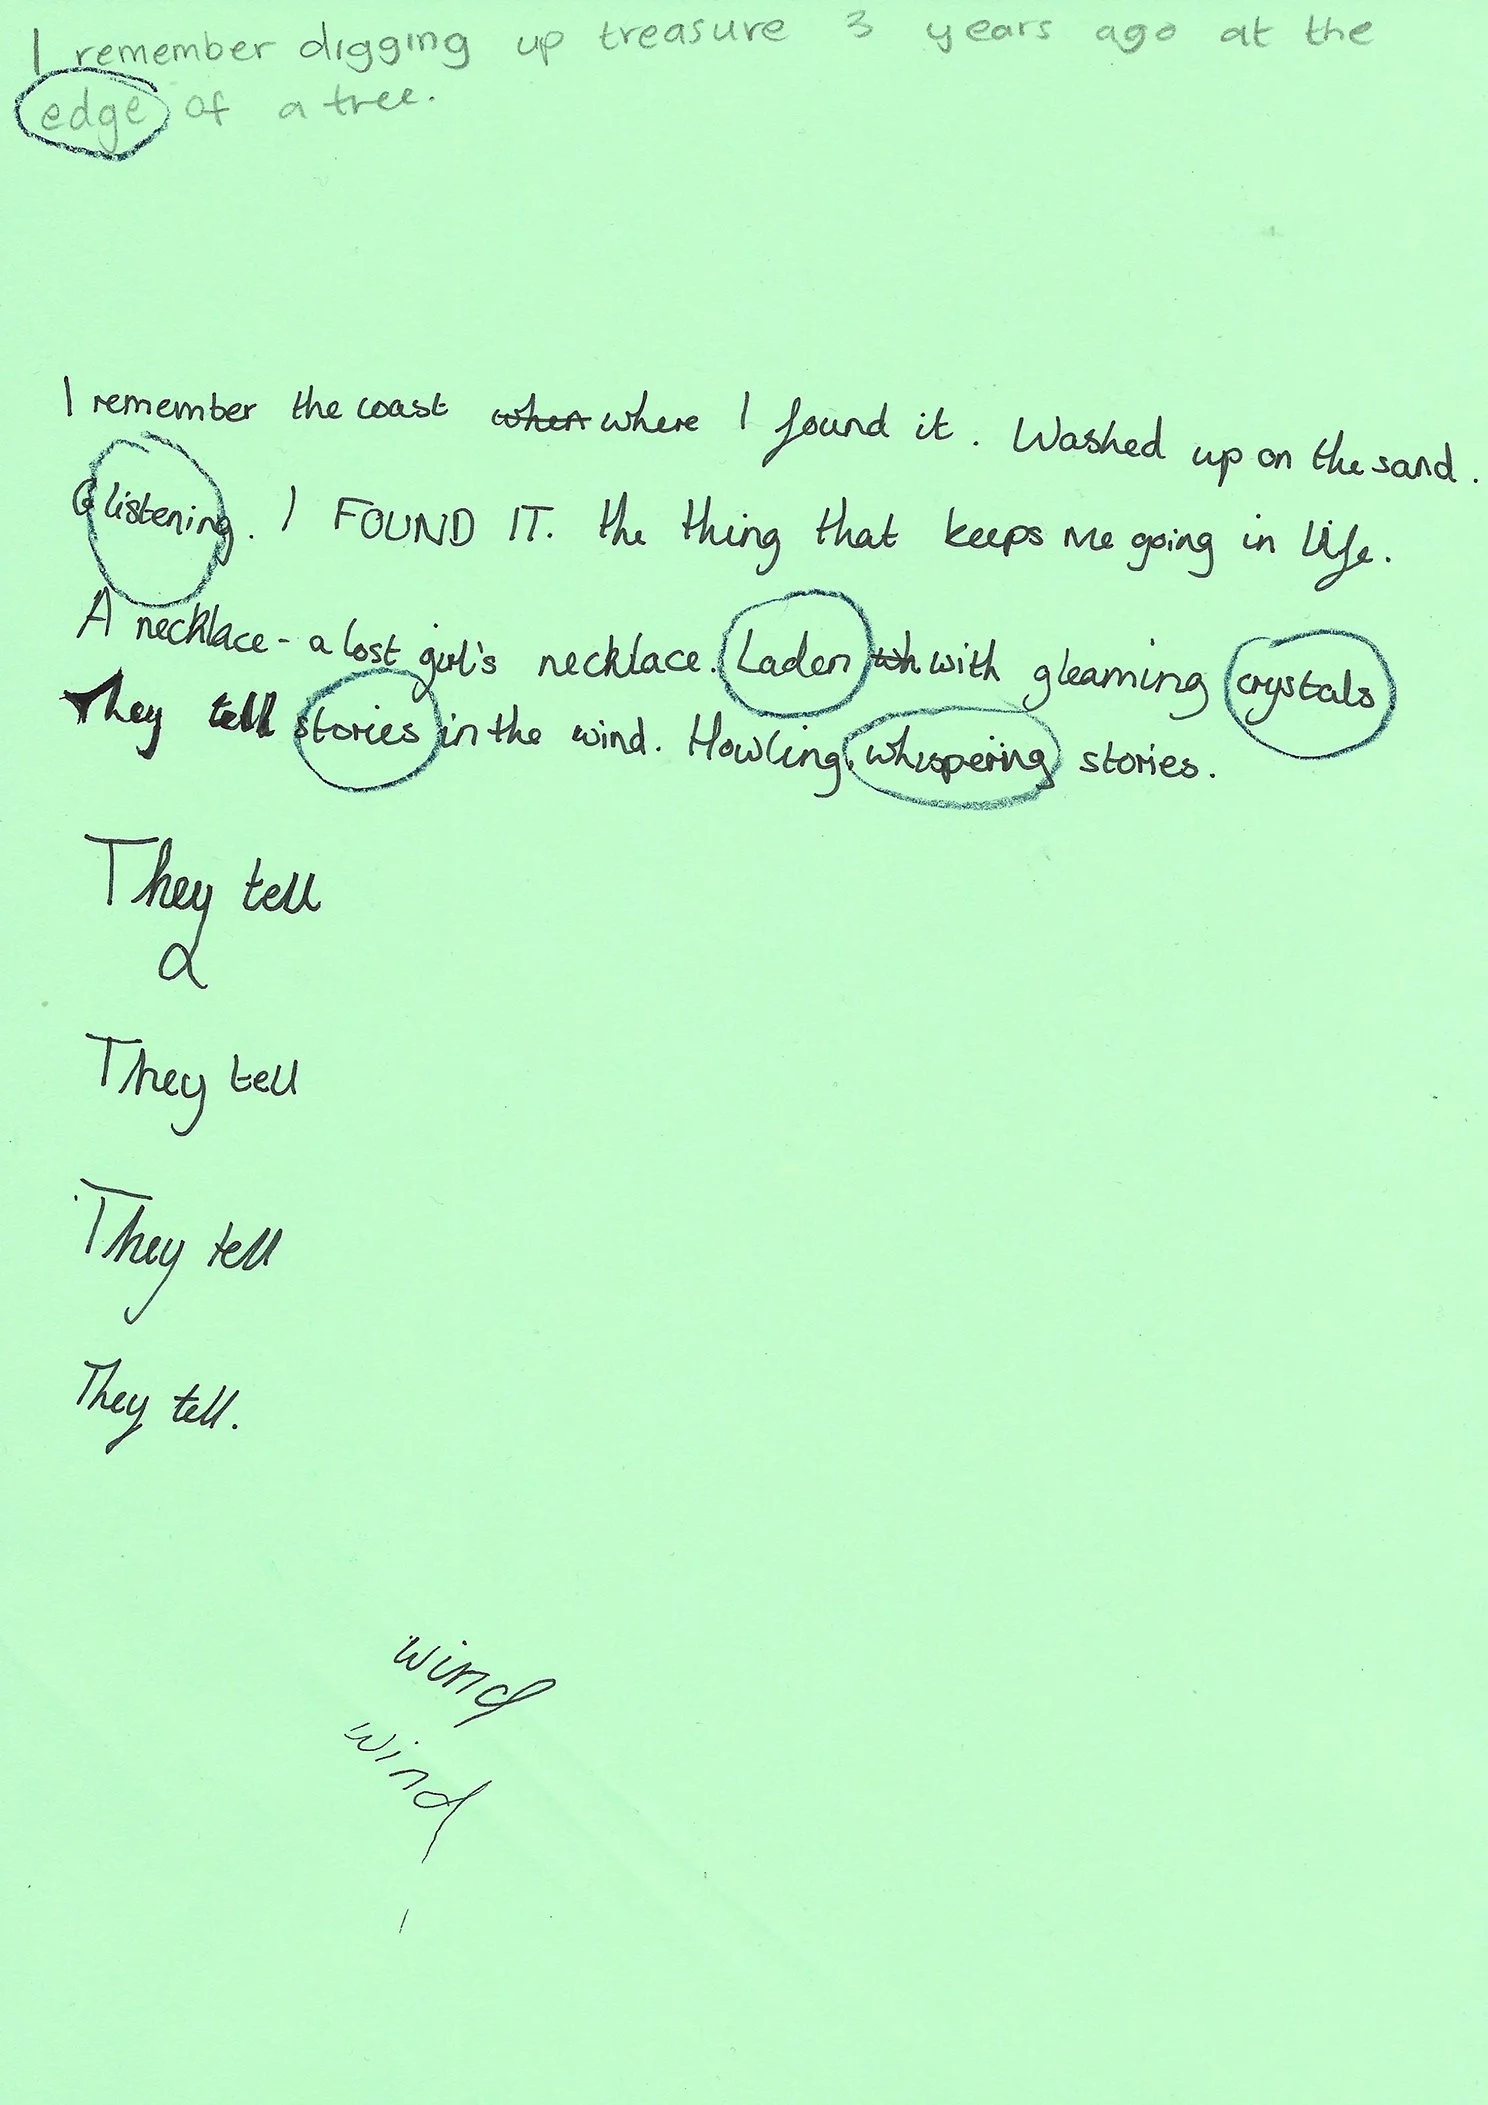 I remember digging up treasure 3 years ago at the
edge of a tree.
I remember the coast when where I found it. Washed up on the sand.
Glistening. I FOUND IT. the thing that keeps me going in life.
A necklace - a lost girl's necklace. Laden wh with gleaming crystals
They tell stories in the wind. Howling, whispering stories.
They tell
They tell
They tell
They tell.
wind
wind